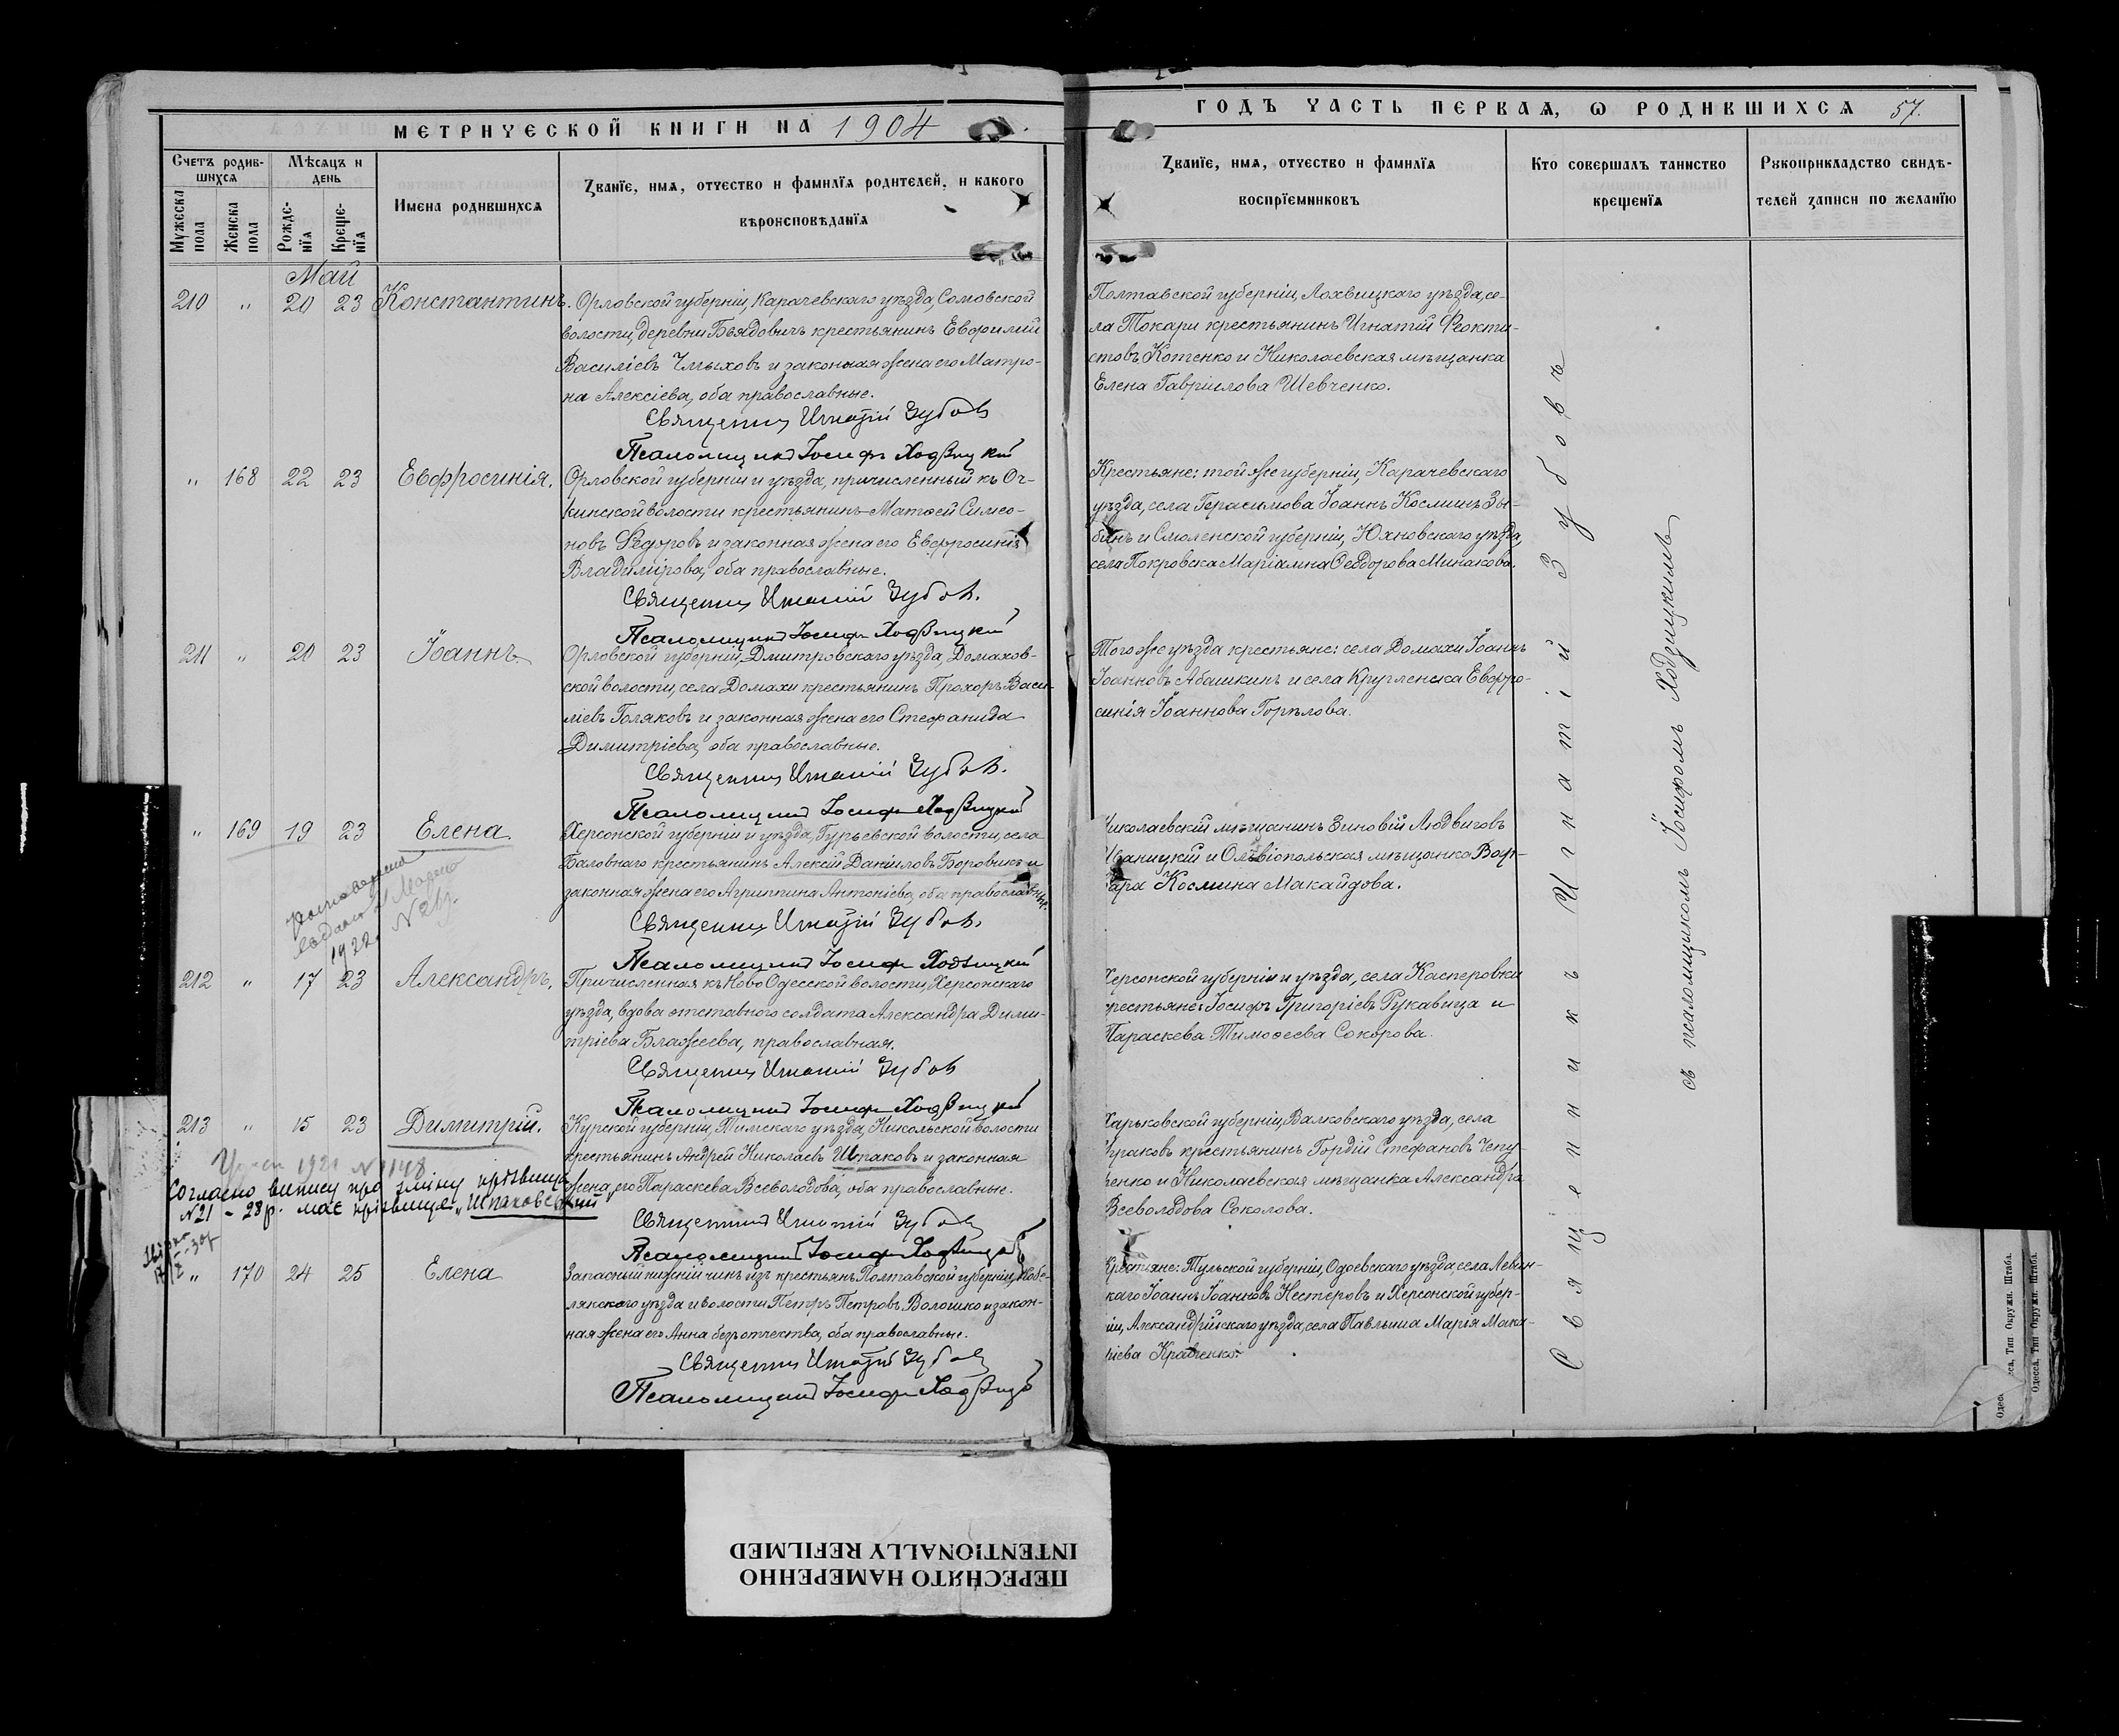 МЕТРИЧЕСКОЙ КНИГИ НА 1904
ГОДЪ ЧАСТЬ ПЕРВАЯ, Ѡ РОДИВШИХСЯ 57.
Счетъ родив-
шихся
Мужеска
пола
Женска
пола
Мѣсяцъ и
день
Рожде-
нїя
Креще-
нїя
Имена родившихся
Званїе, имя, отчество и фамилїя родителей, и какого
вѣроисповѣданїя
Званїе, имя, отчество и фамилїя
воспрїемниковъ
Кто совершалъ таинство
крещенїя
Рукоприкладство свидѣ-
телей записи по желанїю
Май
210 „ 20 23 Константинъ.
Орловской губерніи, Карачевскаго уѣзда, Сомовской
волости, деревни Бѣядовичъ крестьянинъ Евфимій
Василіевъ Чмыховъ и законная жена его Матро-
на Алексіева, оба православные.
Священникъ Игнатій Зубовъ
Псаломщикъ Іосифъ Ходзицкій
Полтавской губерніи, Лохвицкаго уѣзда, се-
ла Токари крестьянинъ Игнатій Феокти-
стовъ Котенко и Николаевская мѣщанка
Елена Гавріилова Шевченко.
„ 168 22 23 Евфросинія.
Орловской губерніи и уѣзда, причисленный къ Оч-
кинской волости крестьянинъ Матѳей Симео-
новъ Федоровъ и законная жена его Евфросинія
Владимірова, оба православные.
Священникъ Игнатій Зубовъ.
Псаломщикъ Іосифъ Ходзицкій
Крестьяне: той же губерніи, Карачевскаго
уѣзда, села Герасимова Іоаннъ Косминъ Зы-
бинъ и Смоленской губерніи, Юхновскаго уѣзда,
села Покровска Маріамна Ѳеодорова Минакова.
211 „ 20 23 Іоаннъ
Орловской губерніи, Дмитровскаго уѣзда, Домахов-
ской волости, села Домахи крестьянинъ Прохоръ Васи-
ліевъ Голяковъ и законная жена его Стефанида
Димитріева, оба православные.
Священникъ Игнатій Зубовъ.
Псаломщикъ Іосифъ Ходзицкій
Того же уѣзда крестьяне: села Домахи Іоаннъ
Іоанновъ Абашкинъ и села Кругленска Евфро-
синія Іоаннова Горѣлова.
„ 169 19 23 Елена
Херсонской губерніи и уѣзда, Гурьевской волости, села
Баловнаго крестьянинъ Алексій Даніиловъ Боровикъ и
законная жена его Агриппина Антоніева, оба православные.
Священникъ Игнатій Зубовъ.
Псаломщикъ Іосифъ Ходзицкій
Николаевскій мѣщанинъ Зиновій Людвиговъ
Иваницкій и Ольвіопольская мѣщанка Вар-
вара Космина Макайдова.
1922
212 „ 17 23 Александръ.
Причисленная къ Ново Одесской волости, Херсонскаго
уѣзда, вдова отставного солдата Александра Дими-
тріева Блажеева, православная.
Священникъ Игнатій Зубовъ
Псаломщикъ Іосифъ Ходзицкій
Херсонской губерніи и уѣзда, села Касперовки
крестьяне: Іосифъ Григоріевъ Рукавица и
Параскева Тимоѳеева Сокорова.
213 „ 15 23 Димитрій.
Курской губерніи, Тимскаго уѣзда, Никольской волости
крестьянинъ Андрей Николаевъ Шпаковъ и законная
жена его Параскева Всеволодова, оба православные.
Священникъ Игнатій Зубовъ
Псаломщикъ Іосифъ Ходзицкій
Харьковской губерніи, Валковскаго уѣзда, села
крестьянинъ Гордій Стефановъ Чепу-
ренко и Николаевская мѣщанка Александра
Всеволодова Соколова.
1921 N 1148
Согласно випису про зміну прізвища
N21 – 28р. має прізвище „Шпаковский"
„ 170 24 25 Елена
Запасный нижній чинъ изъ крестьянъ Полтавской губерніи, Кобе-
лякскаго уѣзда и волости Петръ Петровъ Волошко и закон-
ная жена его Анна безъ отчества, оба православные.
Священникъ Игнатій Зубовъ
Псаломщикъ Іосифъ Ходзицкій
Крестьяне: Тульской губерніи, Одоевскаго уѣзда, села Левин-
каго Іоаннъ Іоанновъ Нестеровъ и Херсонской губер-
ніи, Александрійскаго уѣзда, села Павлыша Марія Мака-
ріева Кравченко.
Священникъ Игнатій Зубовъ
съ псаломщикомъ Іосифомъ Ходзицкимъ
Одесса, Тип. Окружн. Штаба.
Одесса, Тип. Окружн. Штаба.
ПЕРЕСНЯТО НАМЕРЕННО
INTENTIONALLY REFILMED